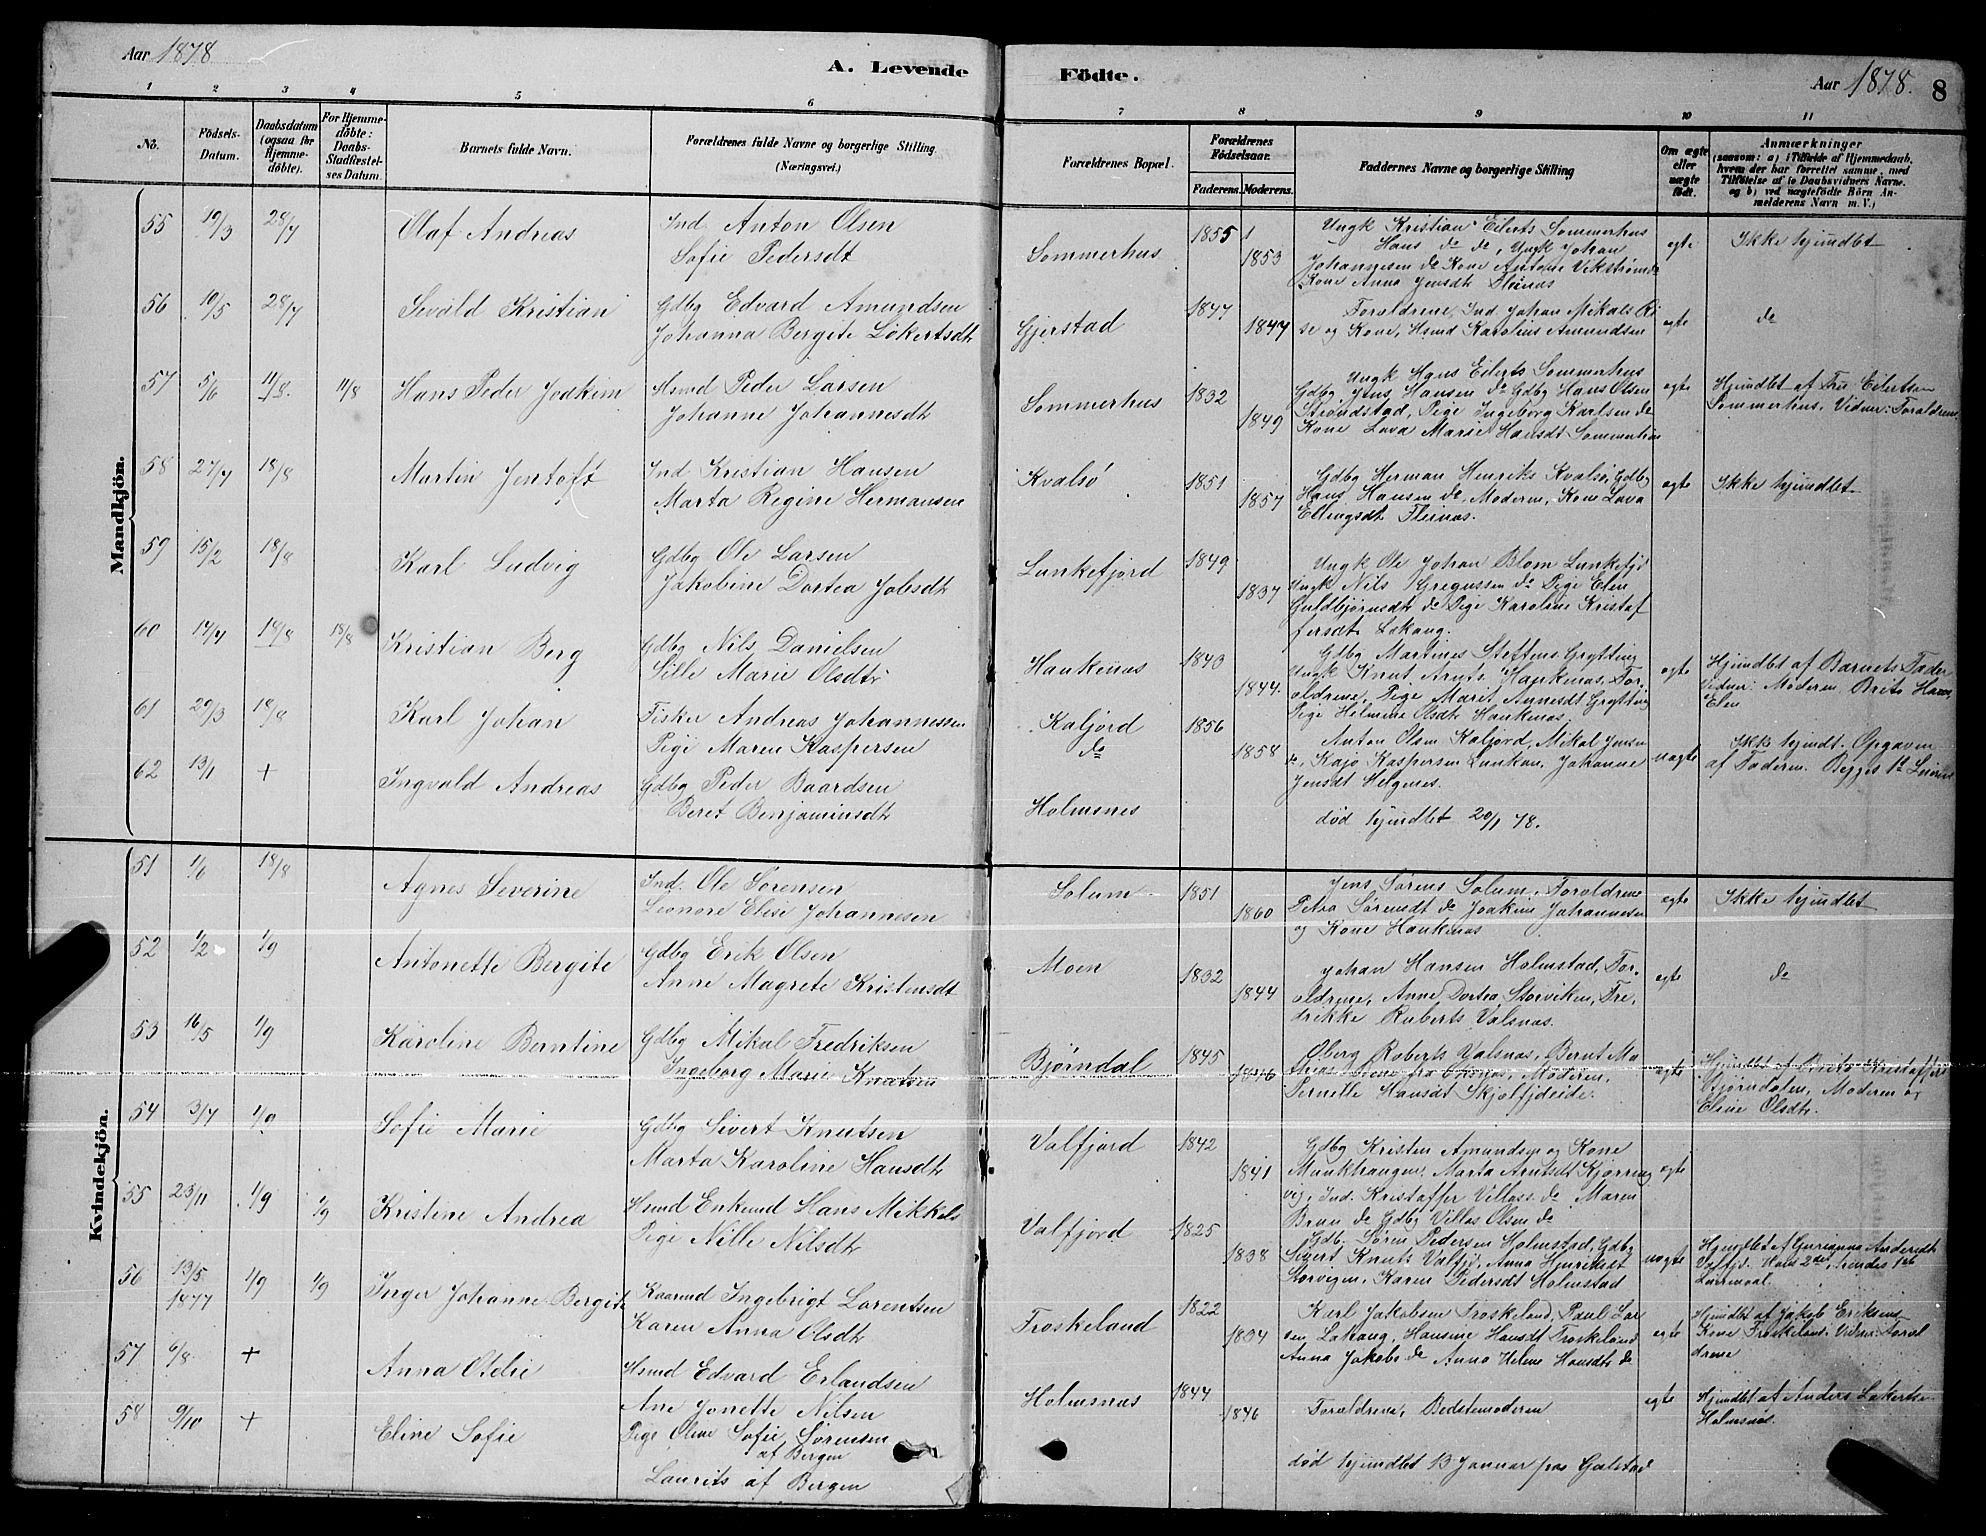 Aar 1878
A. Levende
Födte.
Aar 1878.
8
1 2 3 4 5 6 7 8 9 10 11
No.
Födsels-
Datum.
Daabsdatum
(ogsaa for
Hjemme-
döbte).
For Hjemme-
döbte:
Daabs-
Stadfæstel-
ses Datum.
Barnets fulde Navn.
Forældrenes fulde Navne og borgerlige Stilling
(Næringsvei.)
Forældrenes Bopæl.
Forældrenes
Födselsaar.
Faderens.
Moderens.
Faddernes Navne og borgerlige Stilling
Om ægte
eller
uægte
födt.
Anmærkninger
(saasom: a) i Tilfælde af Hjemmedaab,
hvem der har forrettet samme, med
Tilföielse af to Daabsvidners Navne.
og b) ved uægtefödte Börn An-
melderens Navn m. V.)
Mandkjön.
55 19/3 28/7 Olaf Andreas
Ind. Anton Olsen
Sofie Pedersdt
Sommerhus 1855 1853
Ungk Kristian Eilerts Sommerhus
Hans do do, Ungk Johan
Johannesen do Kone Antone Vikstrøm do
Kone Anna Jensdt Fleinas
egte
Ikke hjmdbt
56 10/5 28/7 Sevald Kristian
Gdbg Edvard Amundsen
Johanna Bergite Lökertsdt
Gjerstad 1847 1847
Foraldrene, Ind. Johan Mikals Rö
se og Kone, Hsmd Karolius Amundsen
egte
do
57 5/6 11/8. 11/8 Hans Peder Joakim
Hsmd Peder Larsen
Johanne Johannesdt
Sommerhus 1832 1849
Ungk Hans Eilerts Sommerhus
Gdbg Jens Hansen do Gdbg Hans Olsen
Strandstad, Pige Ingeborg Karlsen do
Kone Lava Marie Hansdt Sommerhus
egte
Hjmdbt af Fru Eilertsen
Sommerhus, Vidner: Foraldrene
58 27/7 18/8 Martin Jentoft
Ind Kristian Hansen
Marta Regine Hermansen
Kvalsö 1851 1857
Gdbg Herman Henriks Kvalsö, Gdbg
Hans Hansen do, Moderen, Kone Lava
Ellingsdt Fleinas.
egte
Ikke hjmdbt
59 15/2 18/8 Karl Ludvig
Gdbg Ole Larsen
Jakobine Dortea Jobsdt
Lunkefjord 1849 1837
Ungk Ole Johan Blom Lunkefj
Ungk Nils Gregussen do Pige Elen
Guldbjørnsdt do Pige Karoline Kristof
fersdt Lökang.
60 14/7 18/8 18/8 Kristian Berg
Gdbg Nils Danielsen
Sille Marie Olsdtr
Haukenas 1840 1844.
Gdbg Martines Steffens Grytting
Ungk Knut Arnts Haukenas, For-
aldrene, Pige Marit Arnesdt Grytting
Pige Helmine Olsdt Haukenas.
egte
Hjmdbt af Barnets Fader
Vidner: Moderen Brits Hans
Elen
61 29/3 18/8 Karl Johan
Fisker Andreas Johannessen
Pige Maren Kaspersen
Kaljord
do
1856 1858
Anton Olsen Kaljord, Mikal Jensen
do, Kajo Kaspersen Lunkan, Johanne
Jensdt Helgenes.
uagte
Ikke hjmdt. Opgaven
af Faderen. Begges 1te Leierm
62 13/1 + Ingvald Andreas
Gdbg Peder Baardsen
Beret Benjaminsdt
Holmsnes
död hjmdbt 20/1 78.
Kvindekjön.
51 1/6 18/8 Agnes Severine
Ind. Ole Sorensen
Leonore Elise Johannesen
Solum 1851 1860
Jens Sørens Solum, Foraldrene
Petra Sørensdt do Joakim Johannesen
og Kone Haukenas
egte
Ikke hjmdbt
52 1/2 1/9 Antonette Bergite
Gdbg Erik Olsen
Anne Magrete Kristensdt
Moen 1832 1844
Johan Hansen Holmstad, For-
aldrene, Anne Dortea Storviken, Fre-
drikke Roberts Valsnas.
egte
do
53 16/5 1/9 Karoline Berntine
Gdbg Mikal Fredriksen
Ingeborg Marie Knutsen
Bjørndal 1845 1846
Oberg Roberts Valsnas, Bernt Ma
thias Rene fra Ononas, Moderen,
Pernette Hansdt Skjolfjdeide.
egte
Hjmdbt af Brits Kristoffers
Bjorndalen, Moderen og
Eline Olsdt.
54 3/7 1/9 Sofie Marie
Gdbg Sivert Knutsen
Marta Karoline Hansdt
Valfjord 1842 1841
Gdbg Kristen Amundsen og Kone
Maukhaugen, Marta Arntsdt Kjørring
vig, Ind. Kristoffer Villass do Maren
Brun do Gdbg Villas Olsen do
egte
55 23/11 1/9 1/9 Kristine Andrea
Hsmd Enkemd Hans Mikkels
Pige Nille Nilsdt
Valfjord 1825 1838
Gdb. Sören Pedersen Holmstad, Gdbg
Sivert Knuts Valfjo, Anna Henriksdt
Storvigen, Karen Pedersdt Holmstad
uagte
Hjmdbt af Gurianna Andersdt
Valfjd. Hans 2det, hendes 1ste
Leiermaal.
56 13/5
1877
1/9 1/9 Inger Johanne Bergite
Kaarmd Ingebrigt Lorentsen
Karen Anna Olsdt
Froskeland 1822 1834
Karl Jakobsen Froskeland, Paul Lar
sen, Lakang, Hansine Hansdt Froskeland
Anna Jakobs do Anna Helene Hansdt do
egte
Hjmdbt af Jakob Eriksens
Kone Froskeland. Vidner: Foral
drene
57 6/8 + Anna Otelie
Hsmd Edvard Erlandsen
Ane Jonette Nilsen
Holmsnas 1844 1846
Foraldrene, Bedstemoderen
egte
Hjmdbt af Anders Lakertsen
Holmsnas.
58 9/10 + Eline Sofie
Pige Oline Sofie Sorensen
af Bergen
Laurits af Bergen
död hjmdbt 13 Januar paa Galstad